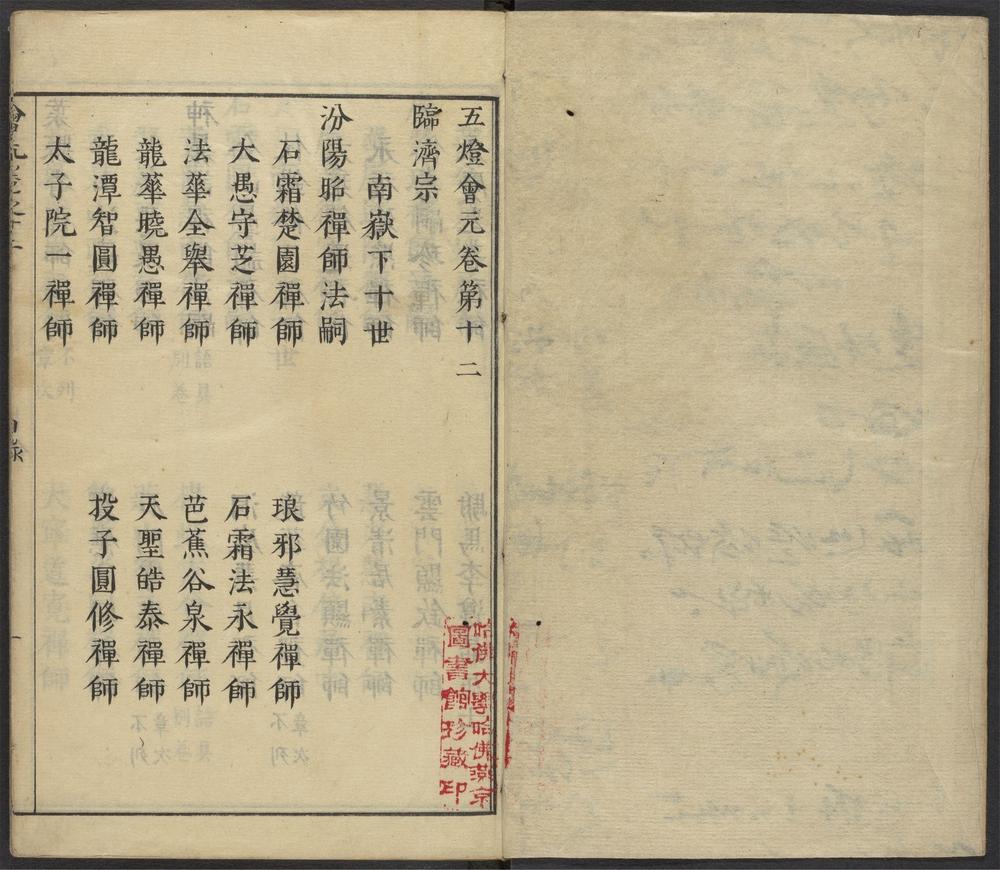 五燈會元卷第十二
臨濟宗
南嶽下十世
汾陽昭禪師法嗣
石霜楚園禪師
琅邪慧覺禪師
大愚守芝禪師
石霜法永禪師
法華全舉禪師
芭蕉谷泉禪師
龍華曉愚禪師
天聖皓泰禪師
龍潭智圓禪師
投子圓修禪師
太子院一禪師
目錄
一
哈佛大學哈佛燕京
圖書館珍藏印